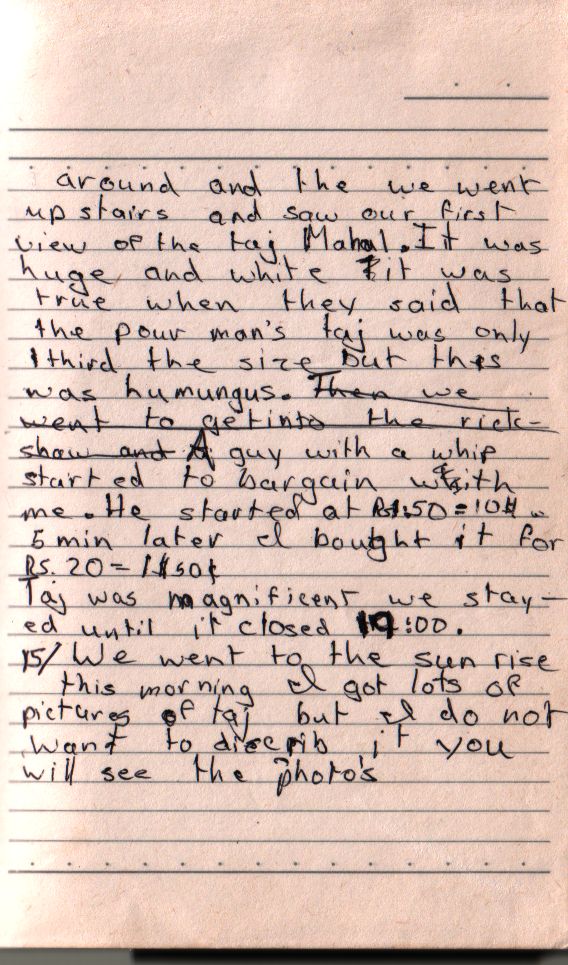 around and the we went
up stairs and saw our first
view of the taj Mahal. It was
huge and white it was
true when they said that
the pour man's taj was only
1 third the size but this
was humungus. Then we
went to get into the rick-
shaw and A guy with a whip
started to bargain with
me. He started at Rs 150 = 10$
5 min later I bought it for
Rs. 20 = 1$50¢
Taj was magnificent we stay-
ed until it closed 19:00.
15/ We went to the sun rise
this morning I got lots of
pictures of taj but I do not
want to discrib it you
will see the photo's